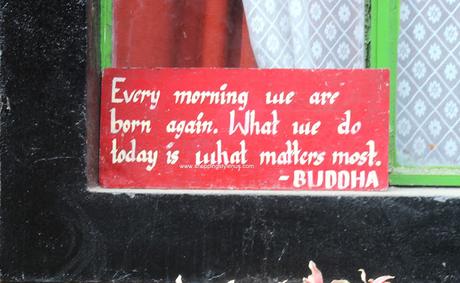 Every morning we are
born again. What we do
today is what matters most.
- BUDDHA